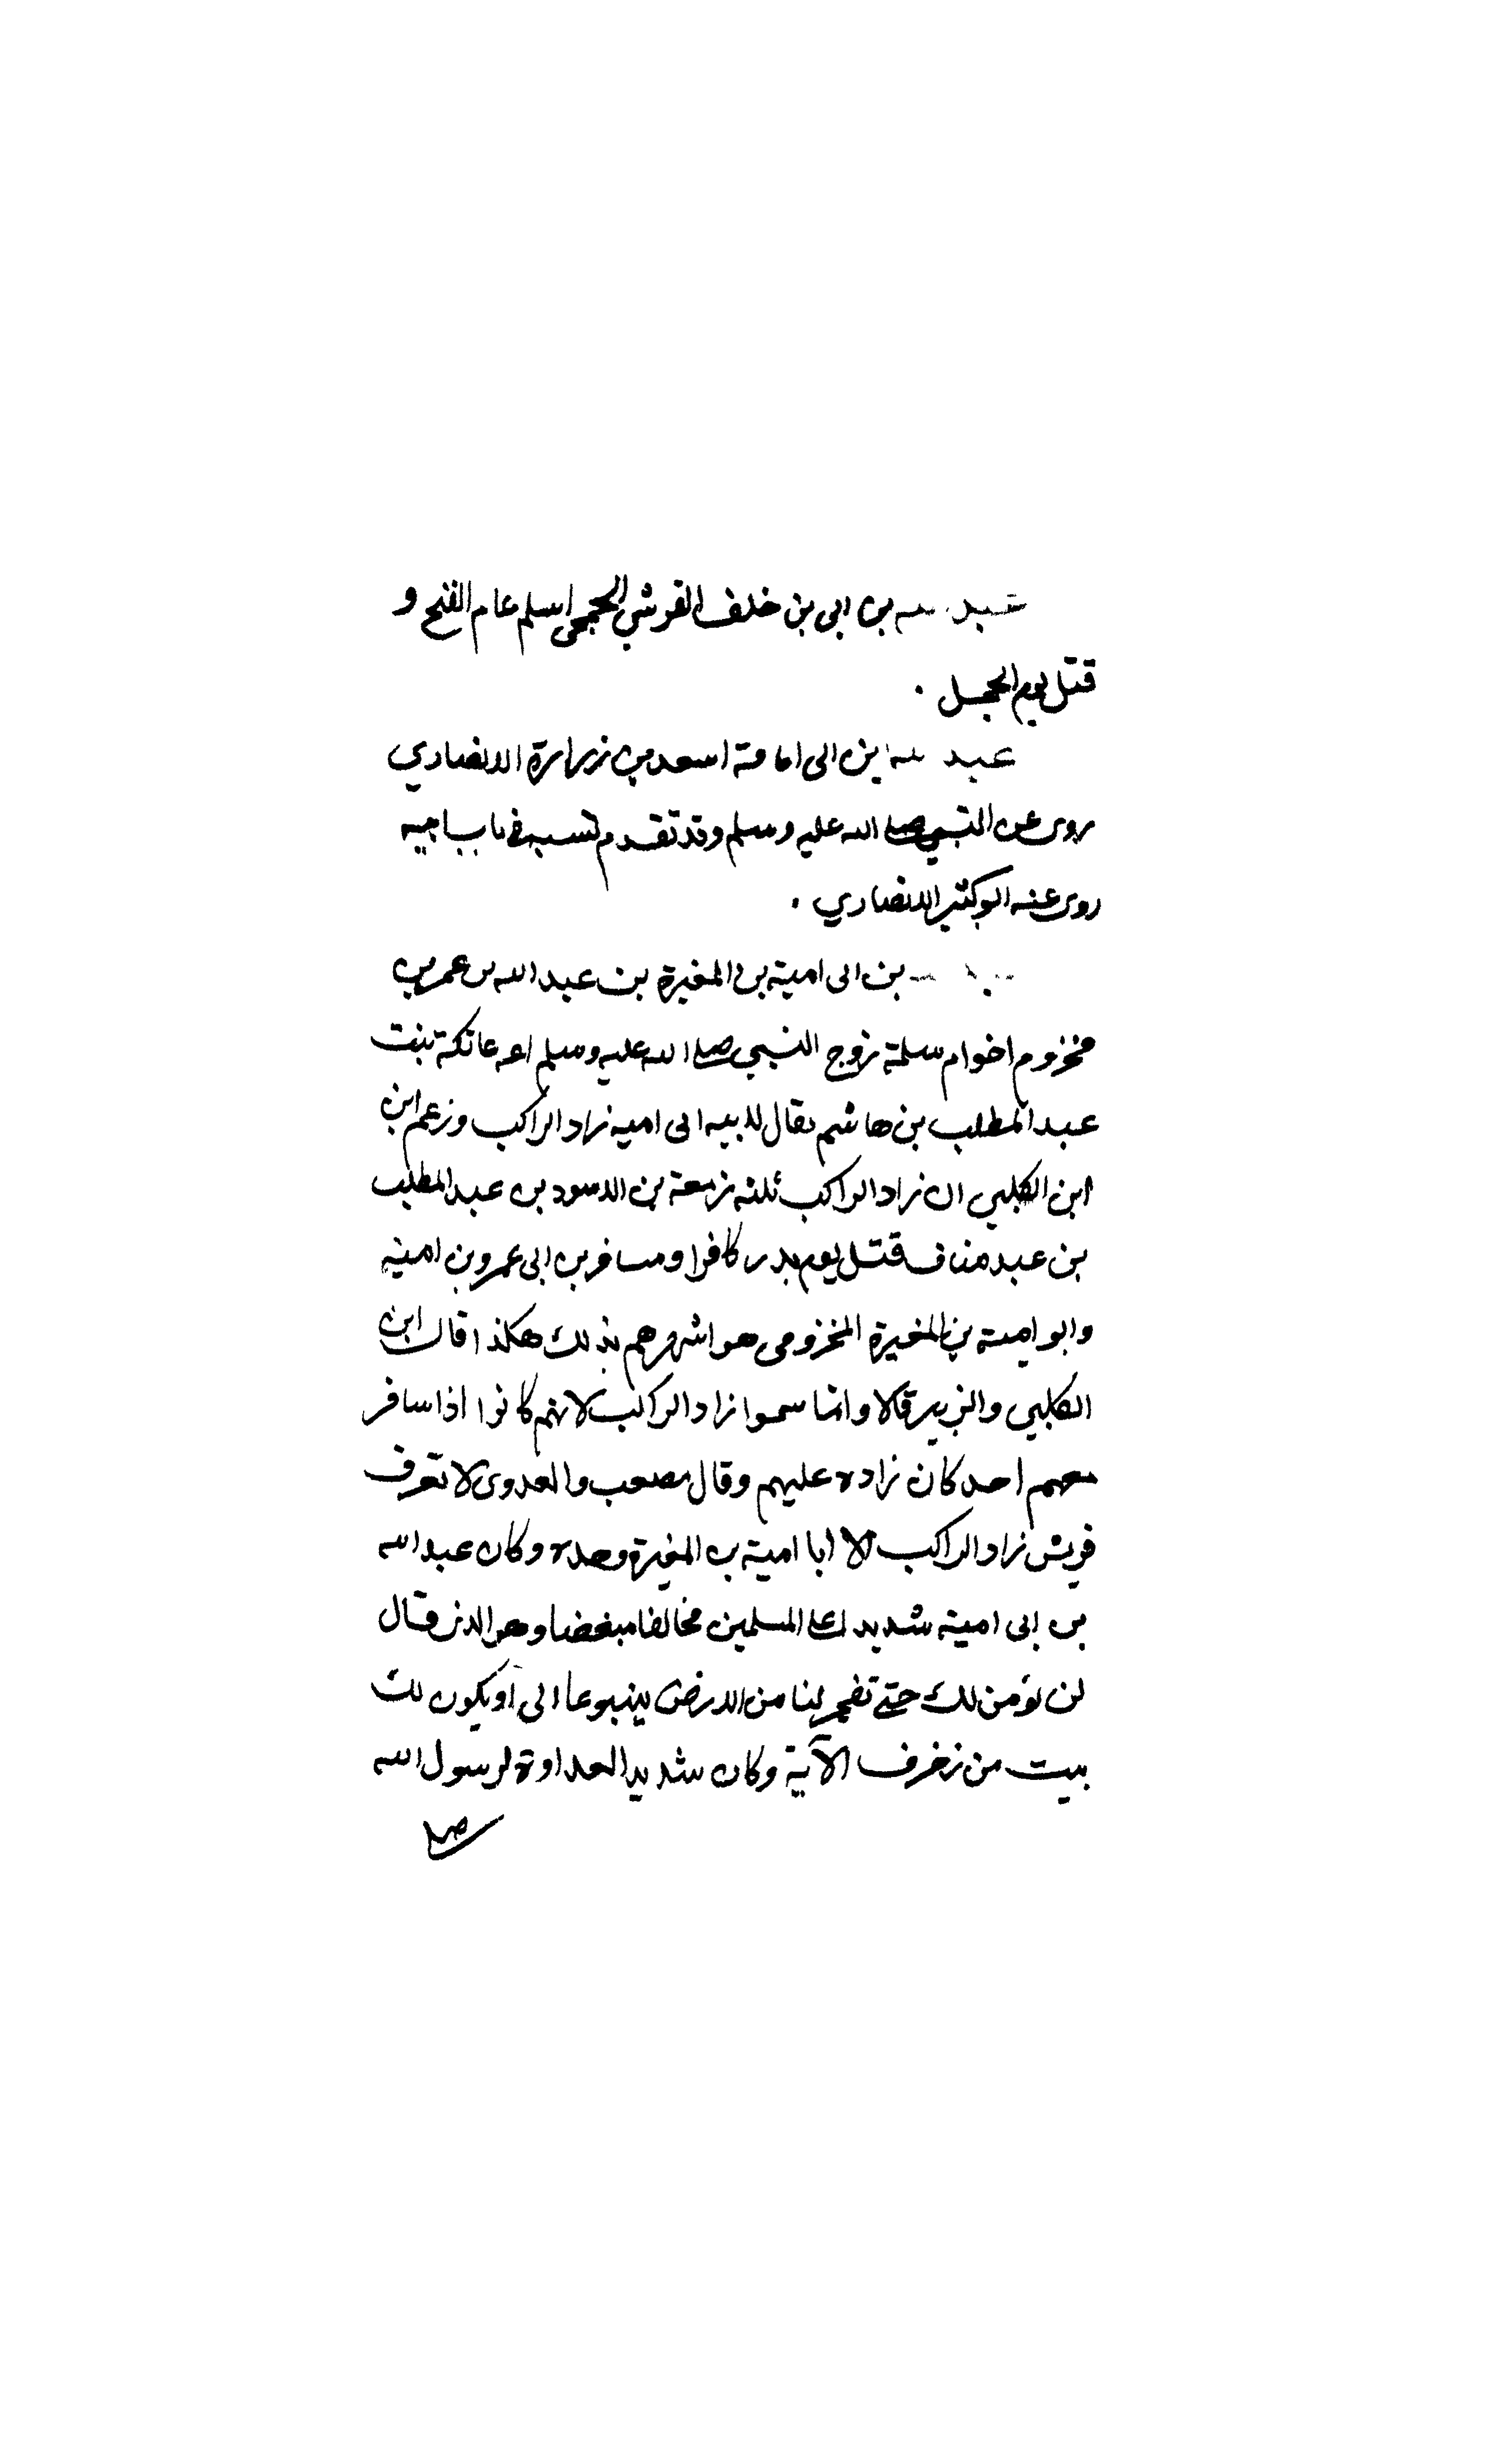 عبد الله بن ابى بن خلف القرشي الجمحى اسلم عام الفتح و
قتل يوم الجمل .
عبد الله بن ابى امامة اسعد بن زرارة الانصاري
روى عن النبي صلى الله عليه وسلم وقد تقدم نسبه فى باب ابيه
روى عنه ابو كثير الانصاري .
بن ابى امية بن المغيرة بن عبد الله بن عمر بن
مخزوم اخو ام سلمة زوج النبي صلى الله عليه وسلم امه عاتكة بنت
عبد المطلب بن هاشم يقال لابيه ابى اميه زاد الراكب وزعم ابن
ابن الكلبي ان زاد الراكب ثلثه زمعة بن الاسود بن عبد المطلب
بن عبد مناف قتل يوم بدر كافرا ومسافر بن ابى عمرو بن امية
وابو امية بن المغيرة المخزومى هو اشهرهم بذلك هكذا قال ابن
الكلبي والزبير قالا وانما سموا زاد الراكب لانهم كانوا اذا سافر
معهم احد كان زاده عليهم وقال مصعب والعدوى لا تعرف
قريش زاد الراكب الا ابا امية بن المغيرة وحده وكان عبد الله
بن ابى امية شديدا على المسلمين مخالفا مبغضا وهو الذى قال
لن نؤمن لك حتى تفجر لنا من الارض ينبوعا الى او يكون لك
بيت من زخرف الآية وكان شديد العداوة لرسول الله
صلى